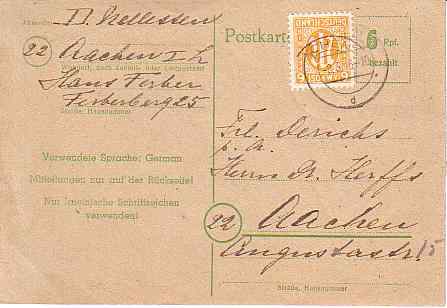 Absender:
D. Nellessen
22 Aachen
Wohnort, auch Zustell- oder Leitpostamt
Hans Ferber
Ferberberg 25
Straße, Hausnummer
Verwendete Sprache: German
Mitteilungen nur auf der Rückseite!
Nur lateinische Schriftzeichen
verwenden!
Postkarte
6 Rpf.
bezahlt
DEUTSCHLAND
Frl. Derichs
Herrn Dr. Herffs
22 Aachen
Augustastr 15
Straße, Hausnummer